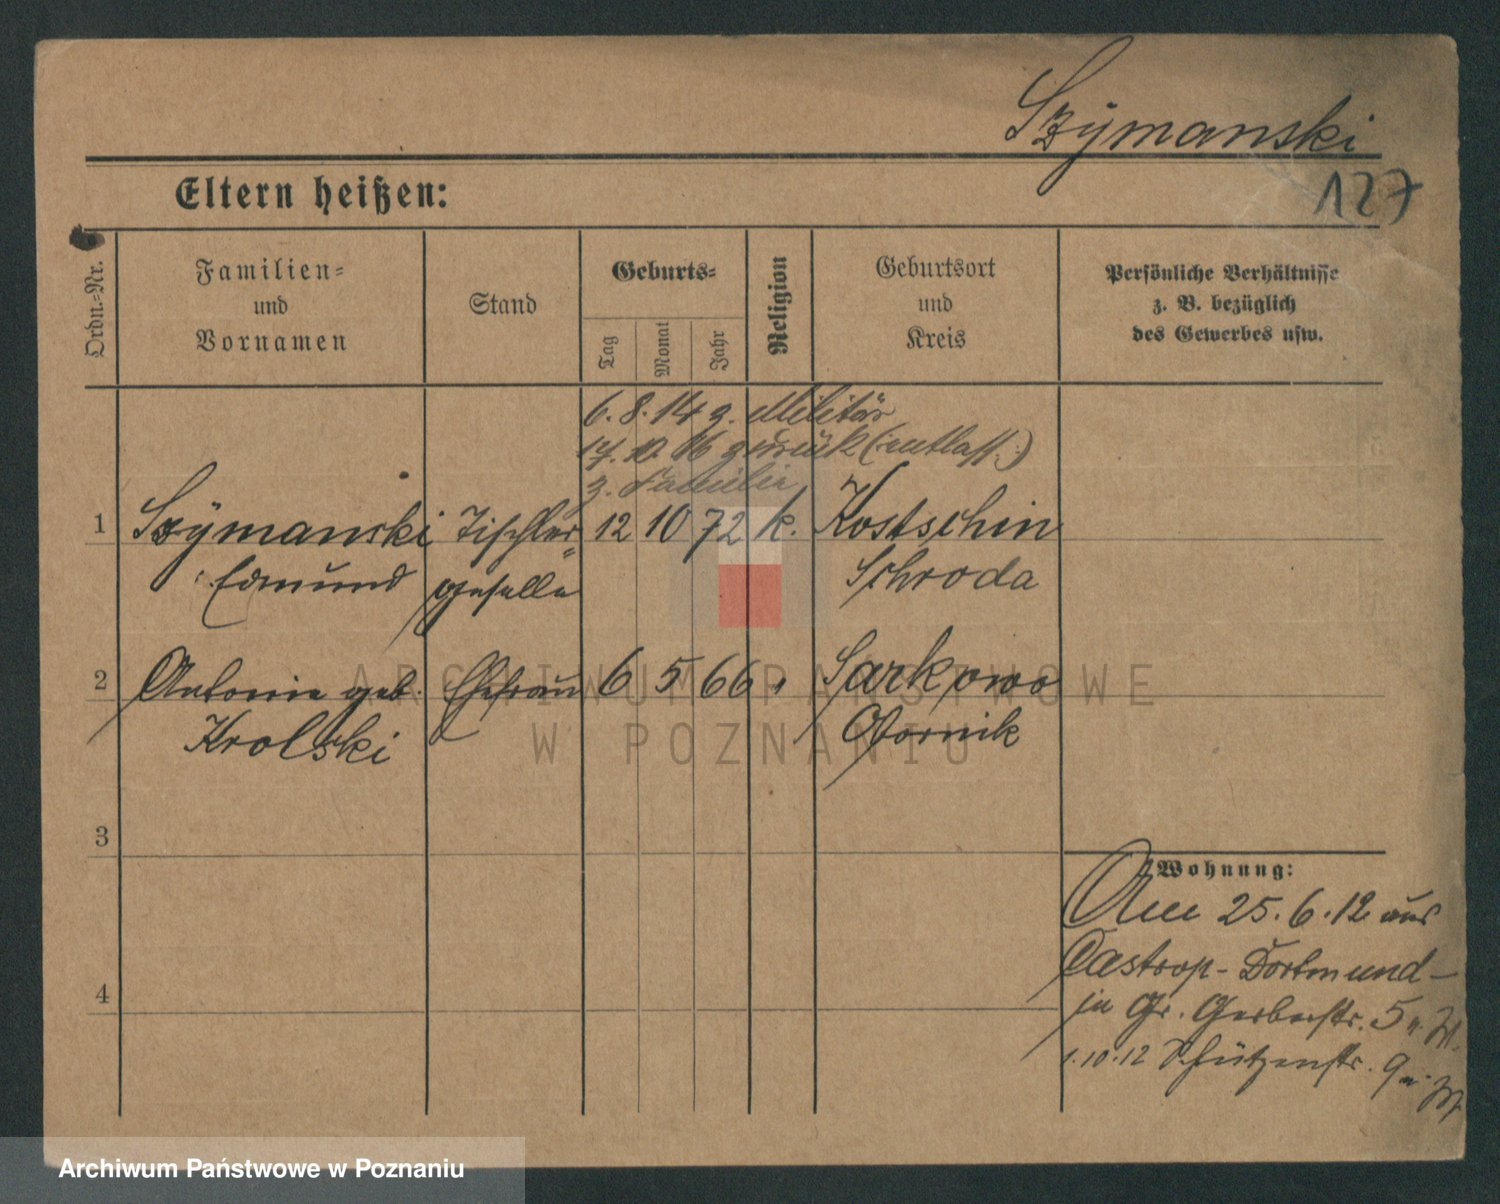 Szÿmanski
127
Eltern heißen:
Ordn.-Nr.
Familien-
und
Vornamen
Stand
Geburts-
Tag
Monat
Jahr
Religion
Geburtsort
und
Kreis
Persönliche Verhältnisse
z. B. bezüglich
des Gewerbes usw.
6. 8. 14 z. Militär
17. 10. 16 zurück (entlass.)
z. Familie
1 Szÿmanski Tischler- 12 10 72 k. Kostschin
Edmund geselle Schroda
2 Antonie geb. Ehefrau 6 5 66 " Sarkowo
Krolski Obornik
3
4
Wohnung:
Am 25.6.12 aus
Castrop-Dortmund-
in Gr. Gerberstr. 5
1.10.12 Schützenstr. 9
ARCHIWUM PAŃSTWOWE
W POZNANIU
Archiwum Państwowe w Poznaniu